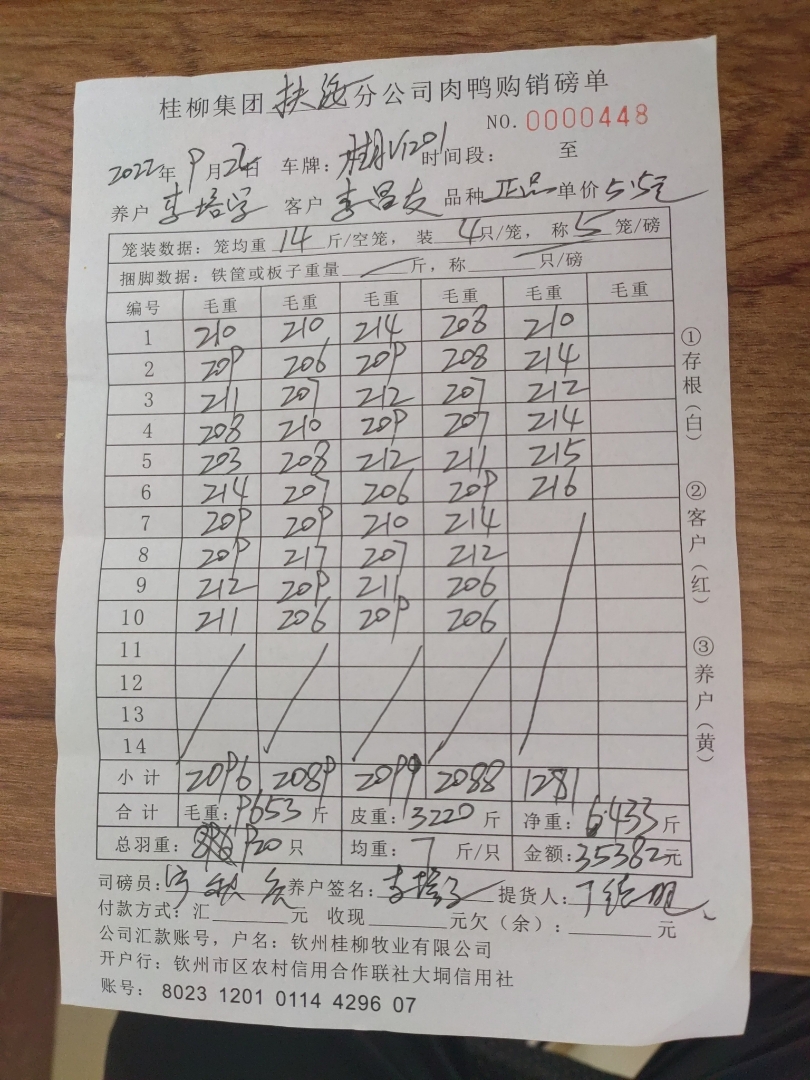 桂柳集团扶绥分公司肉鸭购销磅单
NO. 0000448
2022年9月2日 车牌: V1201 时间段: 至
养户 李培学 客户 李昌友 品种 正品 单价 5.5元
笼装数据: 笼均重 14 斤/空笼, 装 4 只/笼, 称 5 笼/磅
捆脚数据: 铁筐或板子重量 斤, 称 只/磅
编号 毛重 毛重 毛重 毛重 毛重 毛重
1 210 210 214 208 210
2 209 206 209 208 214
3 211 207 212 207 212
4 208 210 209 207 214
5 203 208 212 211 215
6 214 207 206 209 216
7 209 209 210 214
8 209 217 207 212
9 212 209 211 206
10 211 206 209 206
11
12
13
14
小计 2096 2089 2099 2088 1281
合计 毛重: 9653 斤 皮重: 3220 斤 净重: 6433 斤
总羽重: 920 只 均重: 7 斤/只 金额: 35382 元
司磅员: 养户签名: 提货人:
付款方式: 汇 元 收现 元 欠(余): 元
公司汇款账号, 户名: 钦州桂柳牧业有限公司
开户行: 钦州市区农村信用合作联社大垌信用社
账号: 8023 1201 0114 4296 07
①存根(白) ②客户(红) ③养户(黄)